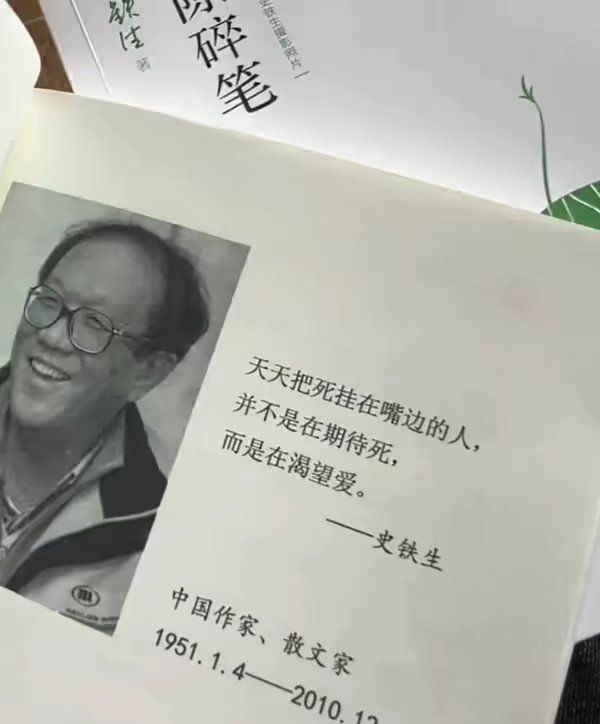 铁生 著
碎笔
史铁生摄影照片
天天把死挂在嘴边的人，
并不是在期待死，
而是在渴望爱。
——史铁生
中国作家、散文家
1951.1.4——2010.12